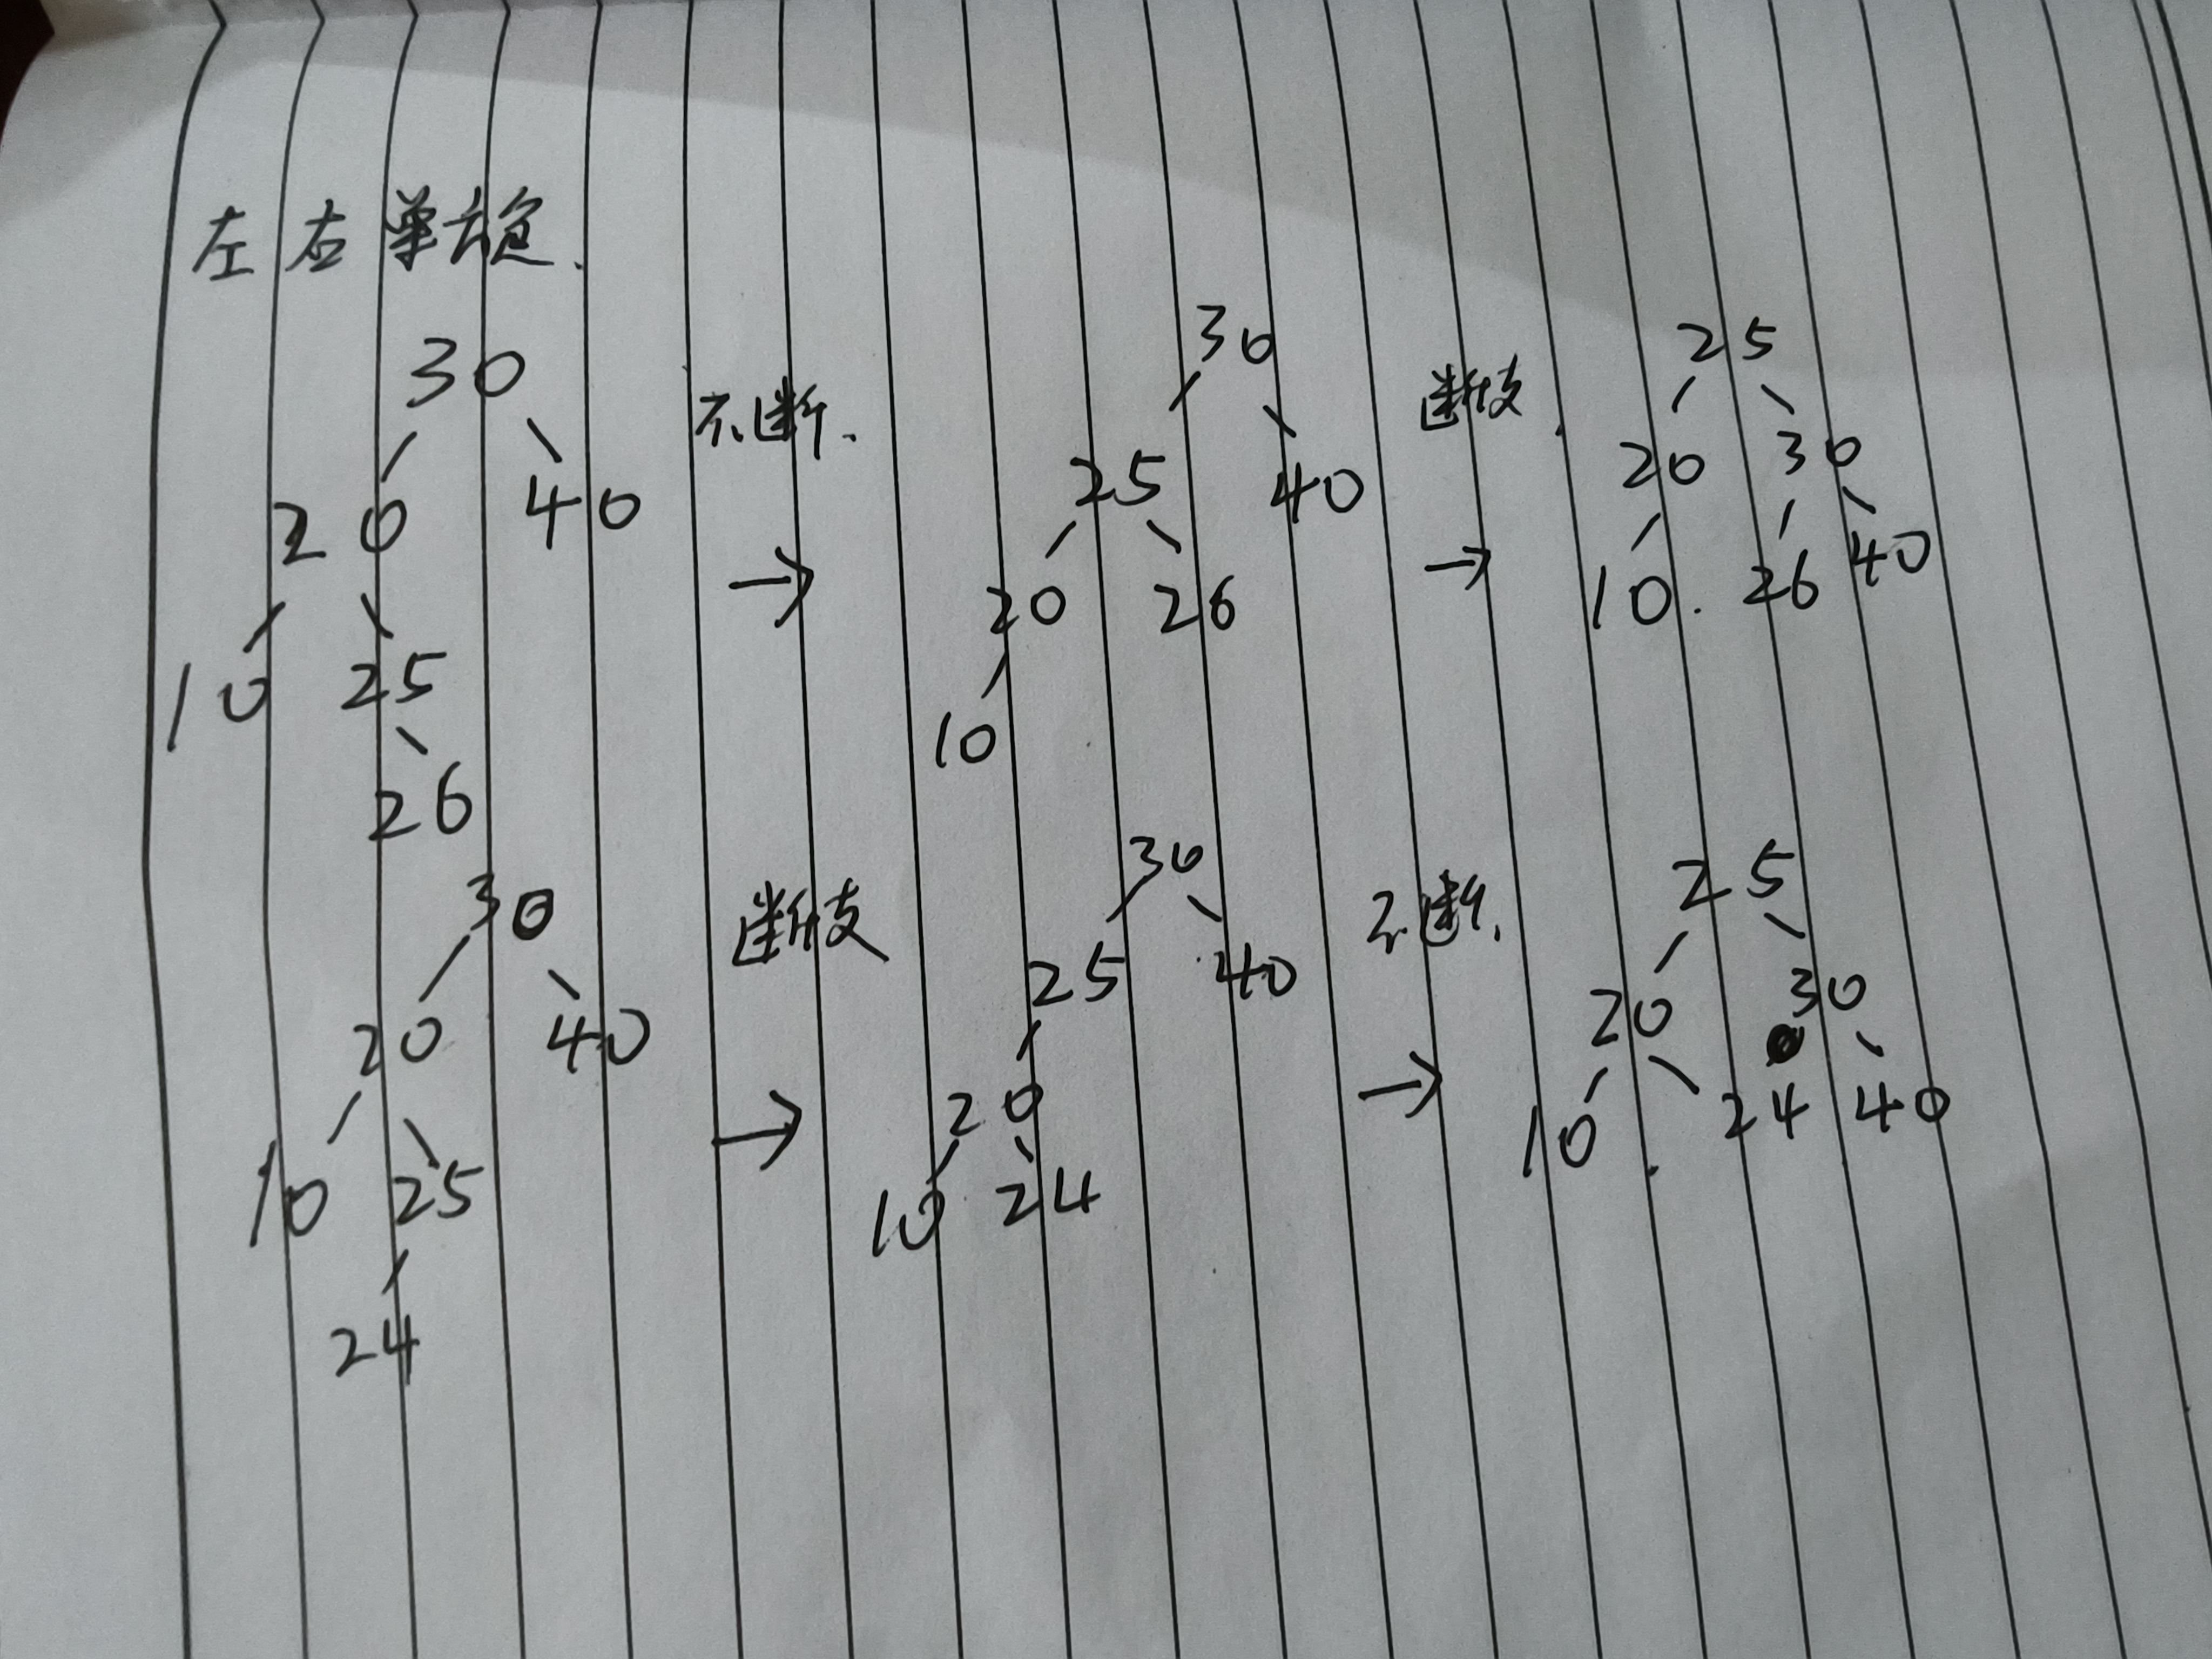 左右单旋.
30
20 40
10 25
26
不断.
→
30
25 40
20 26
10
断枝.
→
25
20 30
10. 26 40
30
20 40
10 25
24
断枝
→
30
25 40
20
10 24
不断.
→
25
20 30
10 24 40